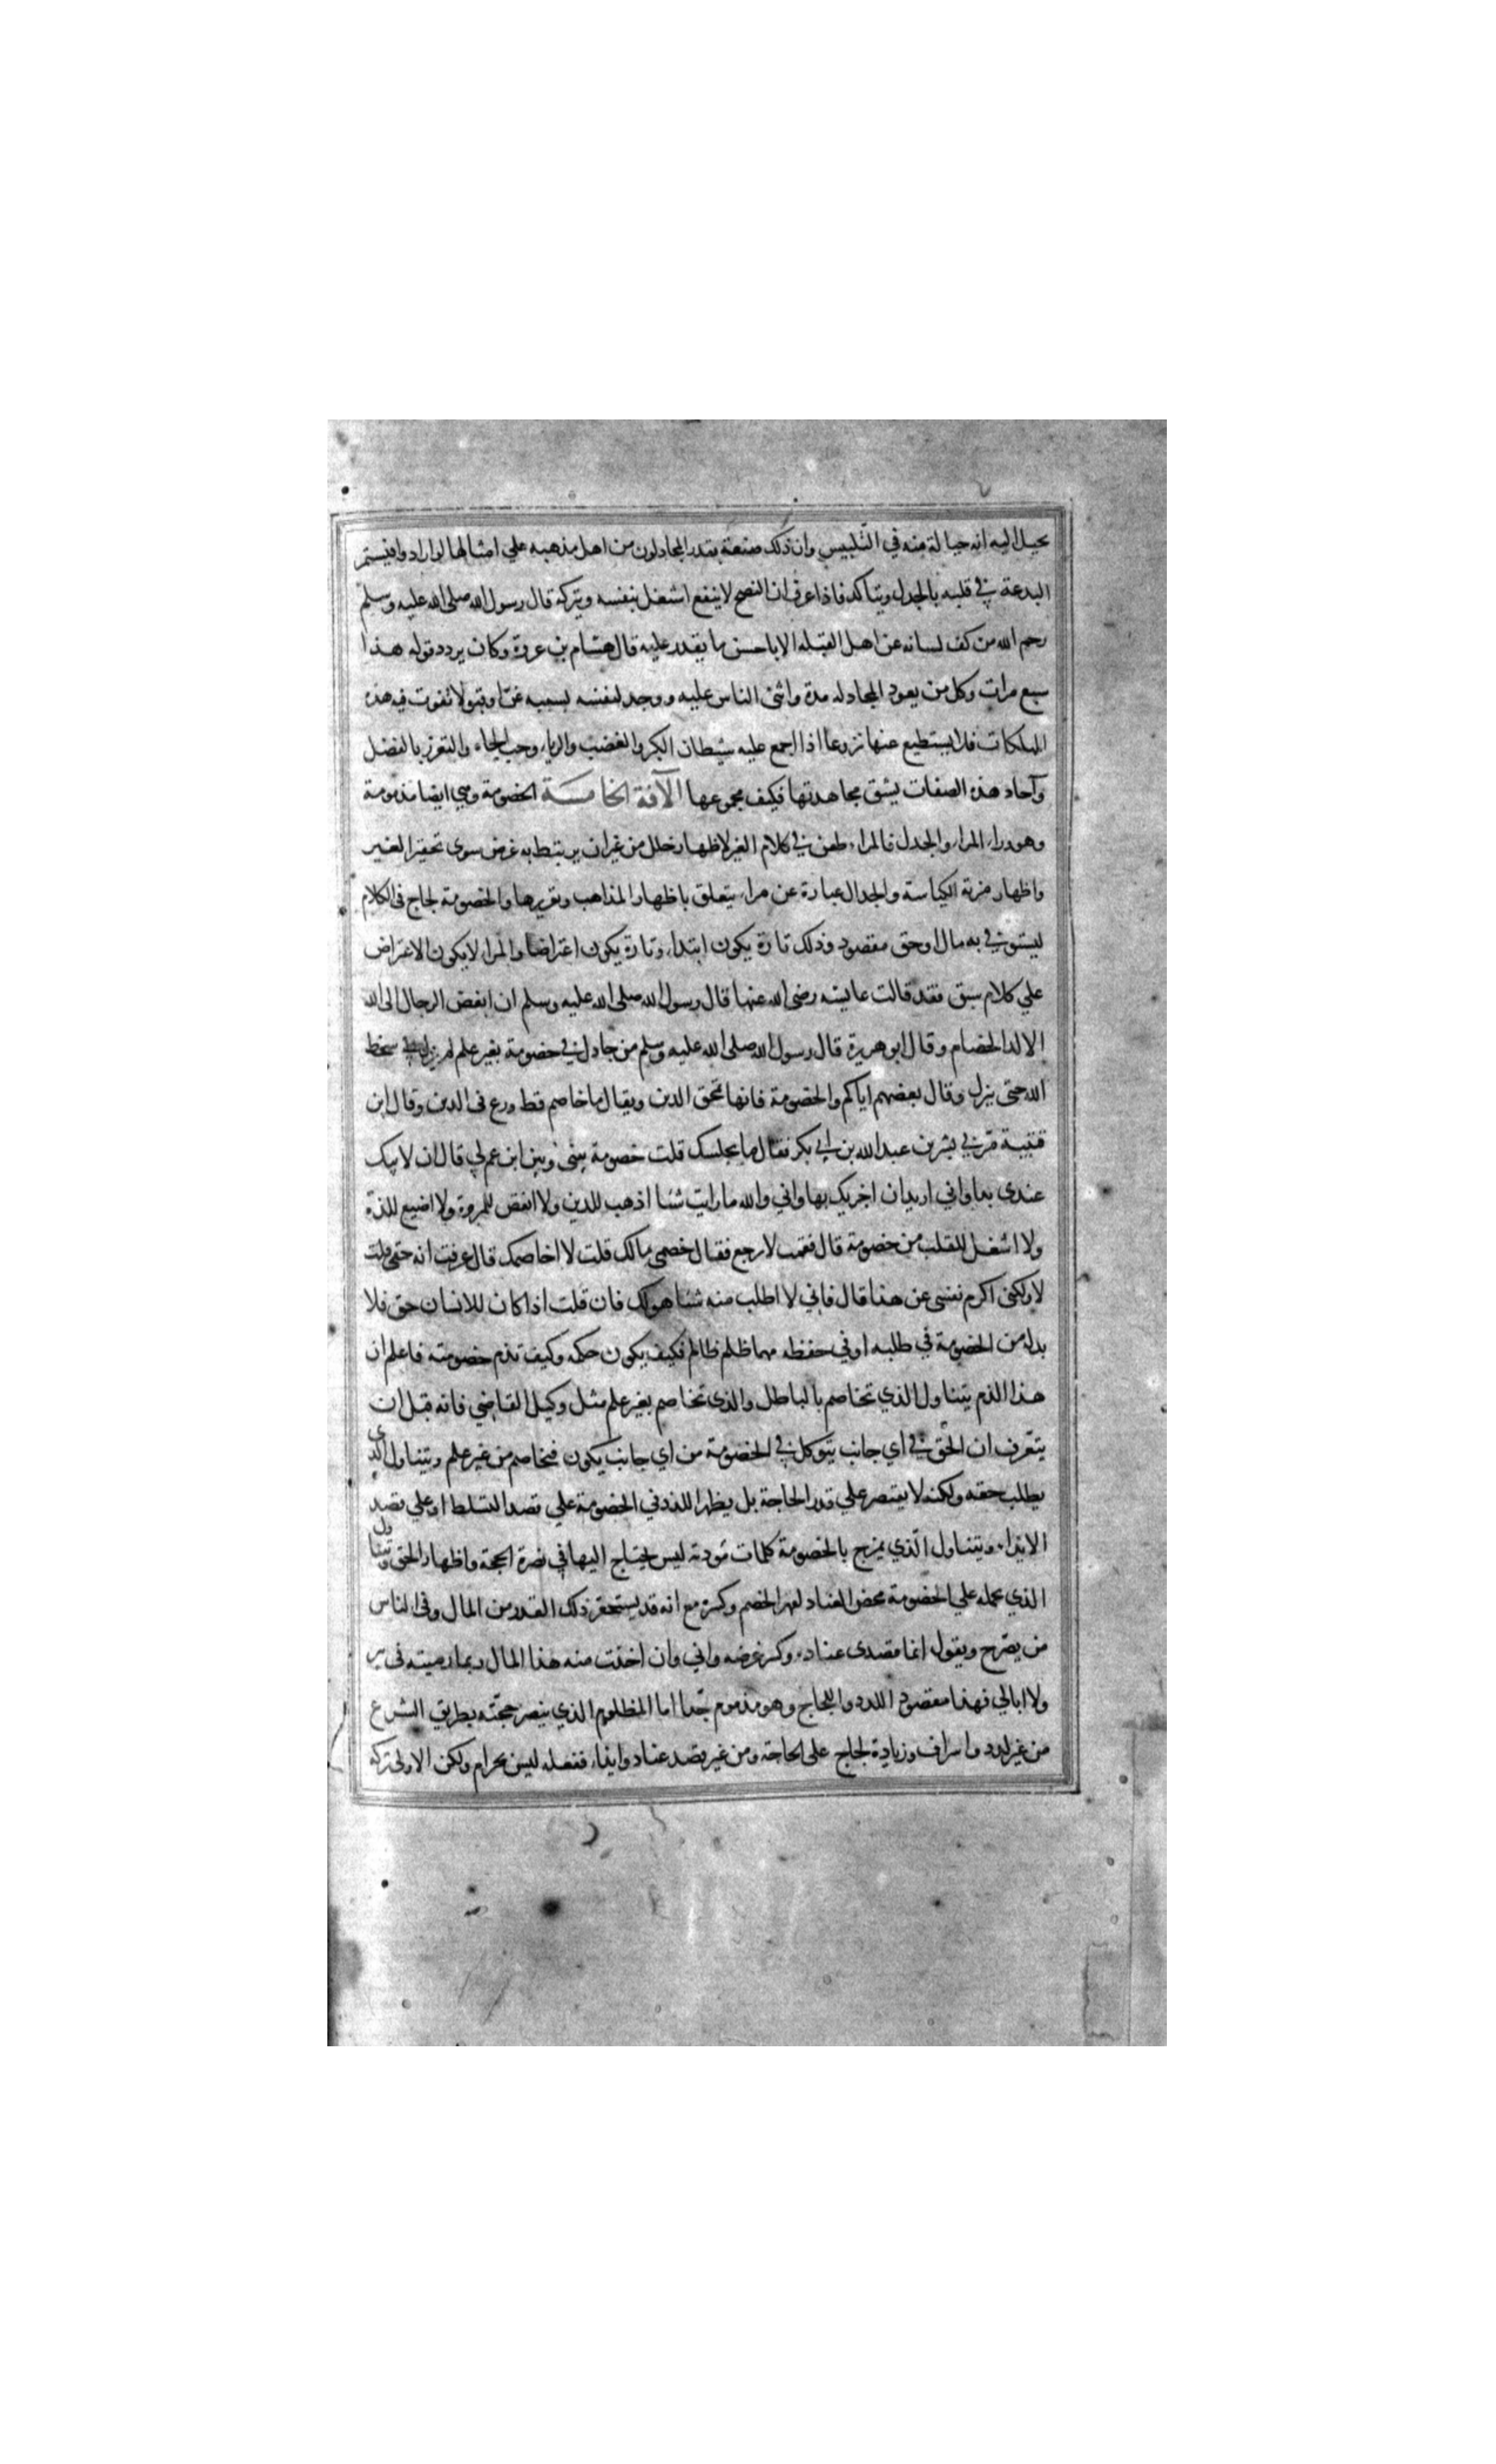 يخيل اليه انه حيا لة منه في التلبيس وان ذلك صنعة يقدر المجادلون من اهل مذهبه علي امثالها لو ارادوا فيستمر
البدعة في قلبه بالجدل ويتأكد فاذا عرف ان النصح لا ينفع اشتغل بنفسه ويتركه قال رسول الله صلى الله عليه وسلم
رحم الله من كف لسانه عن اهل القبله الا باحسن ما يقدر عليه قال هشام بن عروة وكان يردد قوله هذا
سبع مرات وكل من يعود المجادله مدة واثنى الناس عليه ووجد لنفسه بسببه عزا وقبولا تقوت فيه هذه
المهلكات فلا يستطيع عنها نزوعا اذا اجمع عليه شيطان الكبر والغضب والرياء وحب الجاه والتعزز بالفضل
وآحاد هذه الصفات يشق مجاهدتها فكيف مجموعها الآفة الخامسة الخصومة وهي ايضا مذمومة
وهو وراء المراء والجدل فالمراء طعن في كلام الغير لاظهار خلل من غير ان يرتبط به غرض سوى تحقير الغير
واظهار مزية الكياسة والجدال عبارة عن مراء يتعلق باظهار المذاهب وتقريرها والخصومة لجاج في الكلام
ليستوفي به مال او حق مقصود وذلك تارة يكون ابتداء وتارة يكون اعتراضا والمراء لا يكون الاعتراض
علي كلام سبق فقد قالت عايشه رضى الله عنها قال رسول الله صلى الله عليه وسلم ان ابغض الرجال الى الله
الالد الخصام وقال ابو هريرة قال رسول الله صلى الله عليه وسلم من جادل في خصومة بغير علم لم يزل في سخط
الله حتى ينزل وقال بعضهم اياكم والخصومة فانها تمحق الدين ويقال ما خاصم قط ورع فى الدين وقال ابن
قتيبة مر بي بشر بن عبد الله بن ابي بكر فقال ما يجلسك قلت خصومة بيني وبين ابن عم لي قال ان لابيك
عندى يدا واني اريد ان اجزيك بها واني والله ما رايت شئا اذهب للدين ولا انقص للمروة ولا اضيع للذة
ولا اشغل للقلب من خصومة قال فقمت لارجع فقال خصمي مالك قلت لا اخاصمك قال عرفت انه حقي قلت
لا ولكنى اكرم نفسى عن هذا قال فاني لا اطلب منه شئا هو لك فان قلت اذا كان للانسان حق فلا
بد له من الخصومة في طلبه او في حفظه مهما ظلم ظالم فكيف يكون حكمه وكيف تذم خصومته فاعلم ان
هذا الذم يتناول الذي تخاصم بالباطل والذى تخاصم بغير علم مثل وكيل القاضي فانه قبل ان
يتعرف ان الحق في اي جانب يتوكل في الخصومة من اي جانب يكون فيخاصم من غير علم ويتناول الذي
يطلب حقه ولكنه لا يقتصر علي قدر الحاجة بل يظهر اللدد في الخصومة علي قصد التسلط او علي قصد
الايذاء ويتناول الذي يمزج بالخصومة كلمات تؤدته ليس يحتاج اليها في نصرة الحجة واظهار الحق ويتناول
الذي يحمله علي الخصومة محض العناد لقهر الخصم وكسره مع انه قد يستحقر ذلك القدر من المال وفى الناس
من يصرح ويقول انما مقصدى عناده وكسر غرضه واني وان اخذت منه هذا المال ربما رميته في بير
ولا ابالي فهذا مقصود اللدد واللجاج وهو مذموم جدا اما المظلوم الذي ينصر حجته بطريق الشرع
من غير لدد واسراف وزيادة لجاج على الحاجة ومن غير قصد عناد وايذاء ففعله ليس بحرام ولكن الاولى تركه